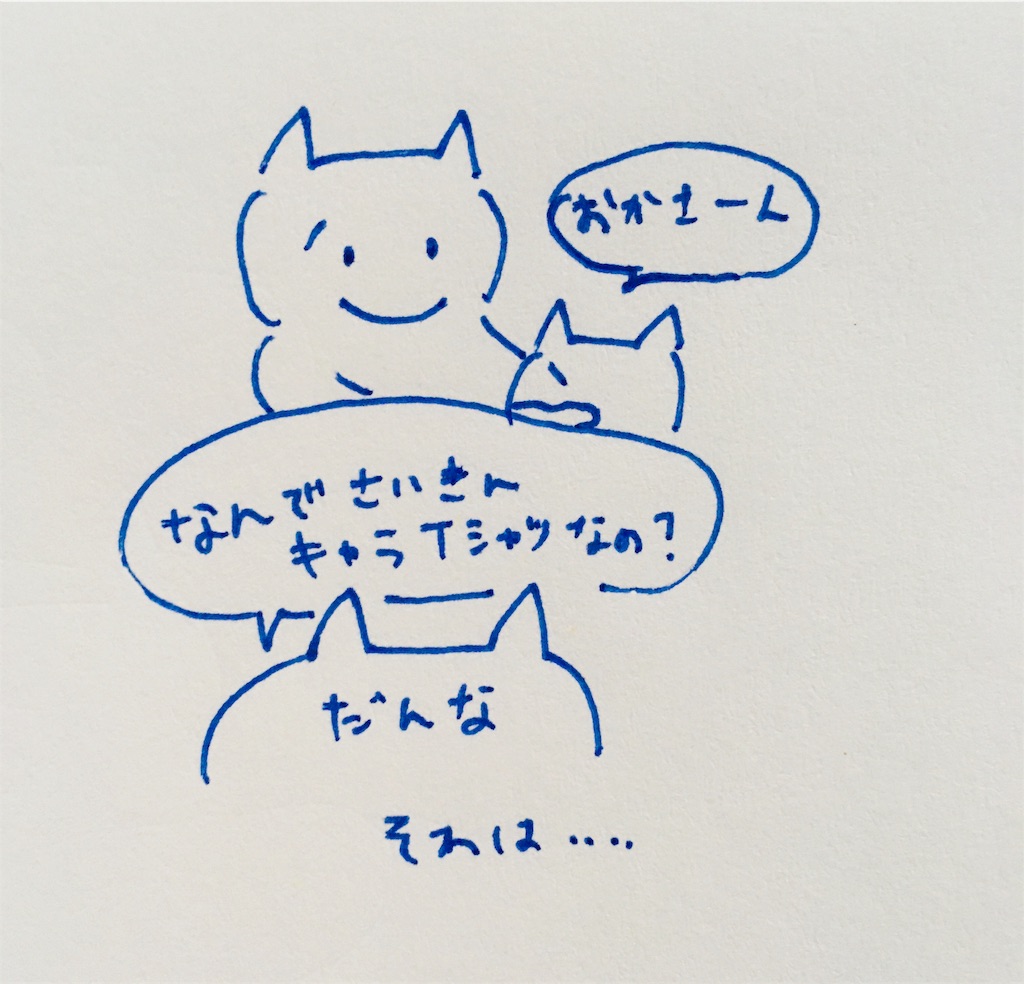 おかさーん
なんでさいきん
キャラTシャツなの?
だんな
それは‥‥